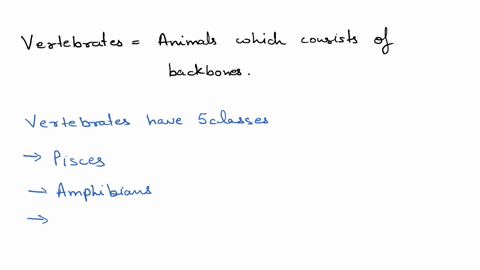 Vertebrates = Animals which consists of
backbones.
Vertebrates have 5 classes
→ Pisces
→ Amphibians
→